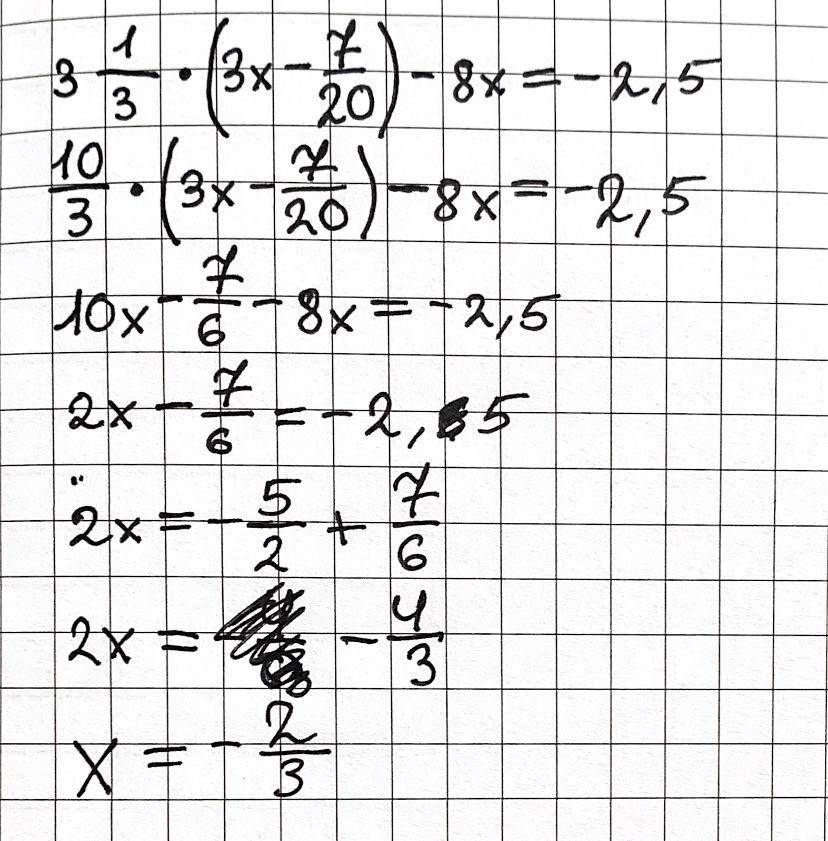 3 1/3 · (3x - 7/20) - 8x = -2,5
10/3 · (3x - 7/20) - 8x = -2,5
10x - 7/6 - 8x = -2,5
2x - 7/6 = -2,5
2x = -5/2 + 7/6
2x = -4/3
x = -2/3